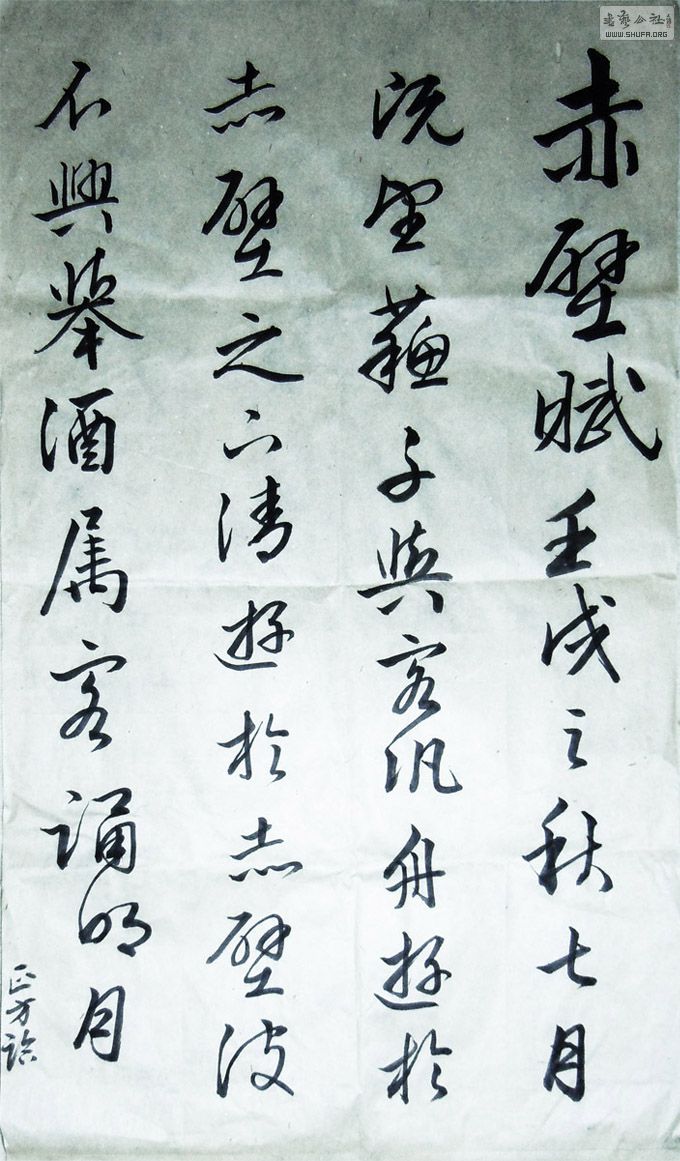 赤壁賦壬戌之秋七月
既望蘇子與客汎舟遊於
赤壁之下清遊於赤壁波
不興舉酒属客誦明月
正方
書藝公社
WWW.SHUFA.ORG